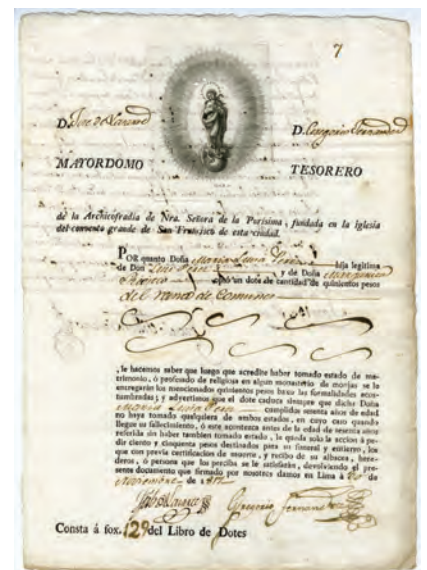 7
D. Jose de
D. Gregorio Fernandez
MAYORDOMO
TESORERO
de la Archicofradia de Nra. Señora de la Purisima, fundada en la Iglesia
del convento grande de San Francisco de esta ciudad.
POR quanto Doña Maria Luisa hija legitima
de Don Luis y de Doña Margarita
opto un dote de cantidad de quinientos pesos
del ramo de Comunes
, le hacemos saber que luego que acredite haber tomado estado de ma-
trimonio, ó profesado de religiosa en algun monasterio de monjas se le
entregarán los mencionados quinientos pesos baxo las formalidades acos-
tumbradas; y advertimos que el dote caduca siempre que dicha Doña
Maria Luisa cumplidos sesenta años de edad
no haya tomado qualquiera de ambos estados, en cuyo caso quando
llegue su fallecimiento, ó este acontezca antes de la edad de sesenta años
referida sin haber tambien tomado estado, la queda solo la accion á pe-
dir ciento y cinquenta pesos destinados para su funeral y entierro, los
que con previa certificacion de muerte, y recibo de su albacea, here-
deros, ó persona que los perciba se le satisfarán, devolviendo el pre-
sente documento que firmado por nosotros damos en Lima á
Noviembre de
Gregorio Fernandez
Consta á fox. 129 del Libro de Dotes